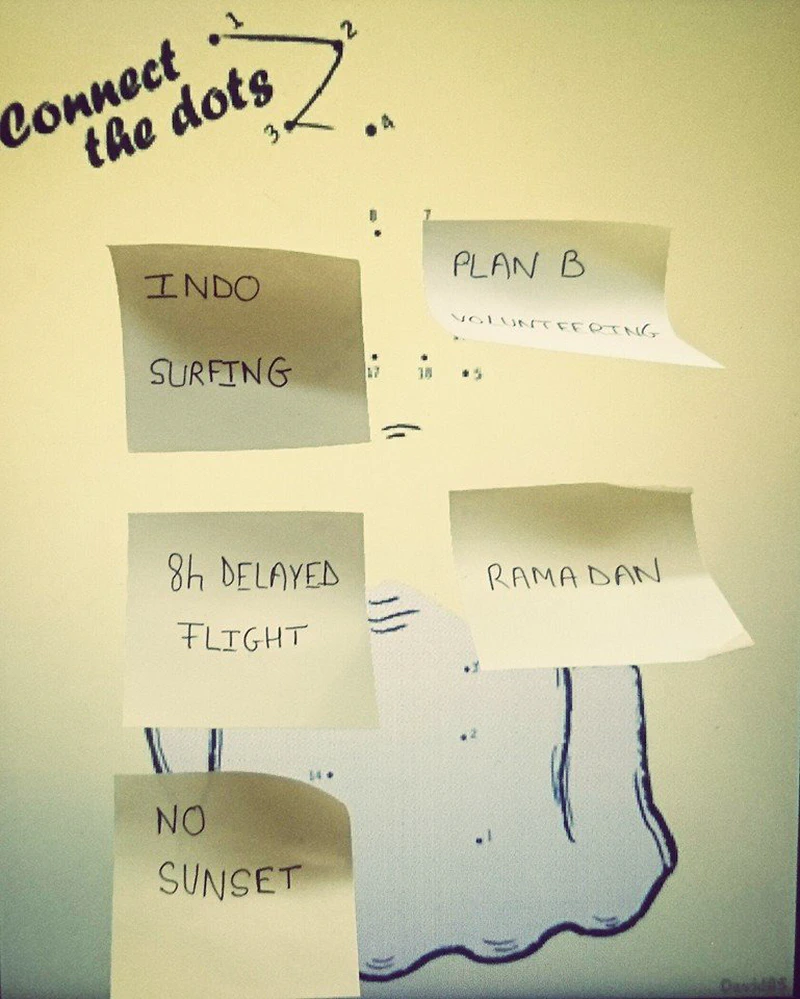 Connect
the dots
1
2
3
4
8
7
INDO
SURFING
PLAN B
VOLUNTEERING
17
18
5
8h DELAYED
FLIGHT
RAMADAN
3
2
14
1
NO
SUNSET
DavidBS